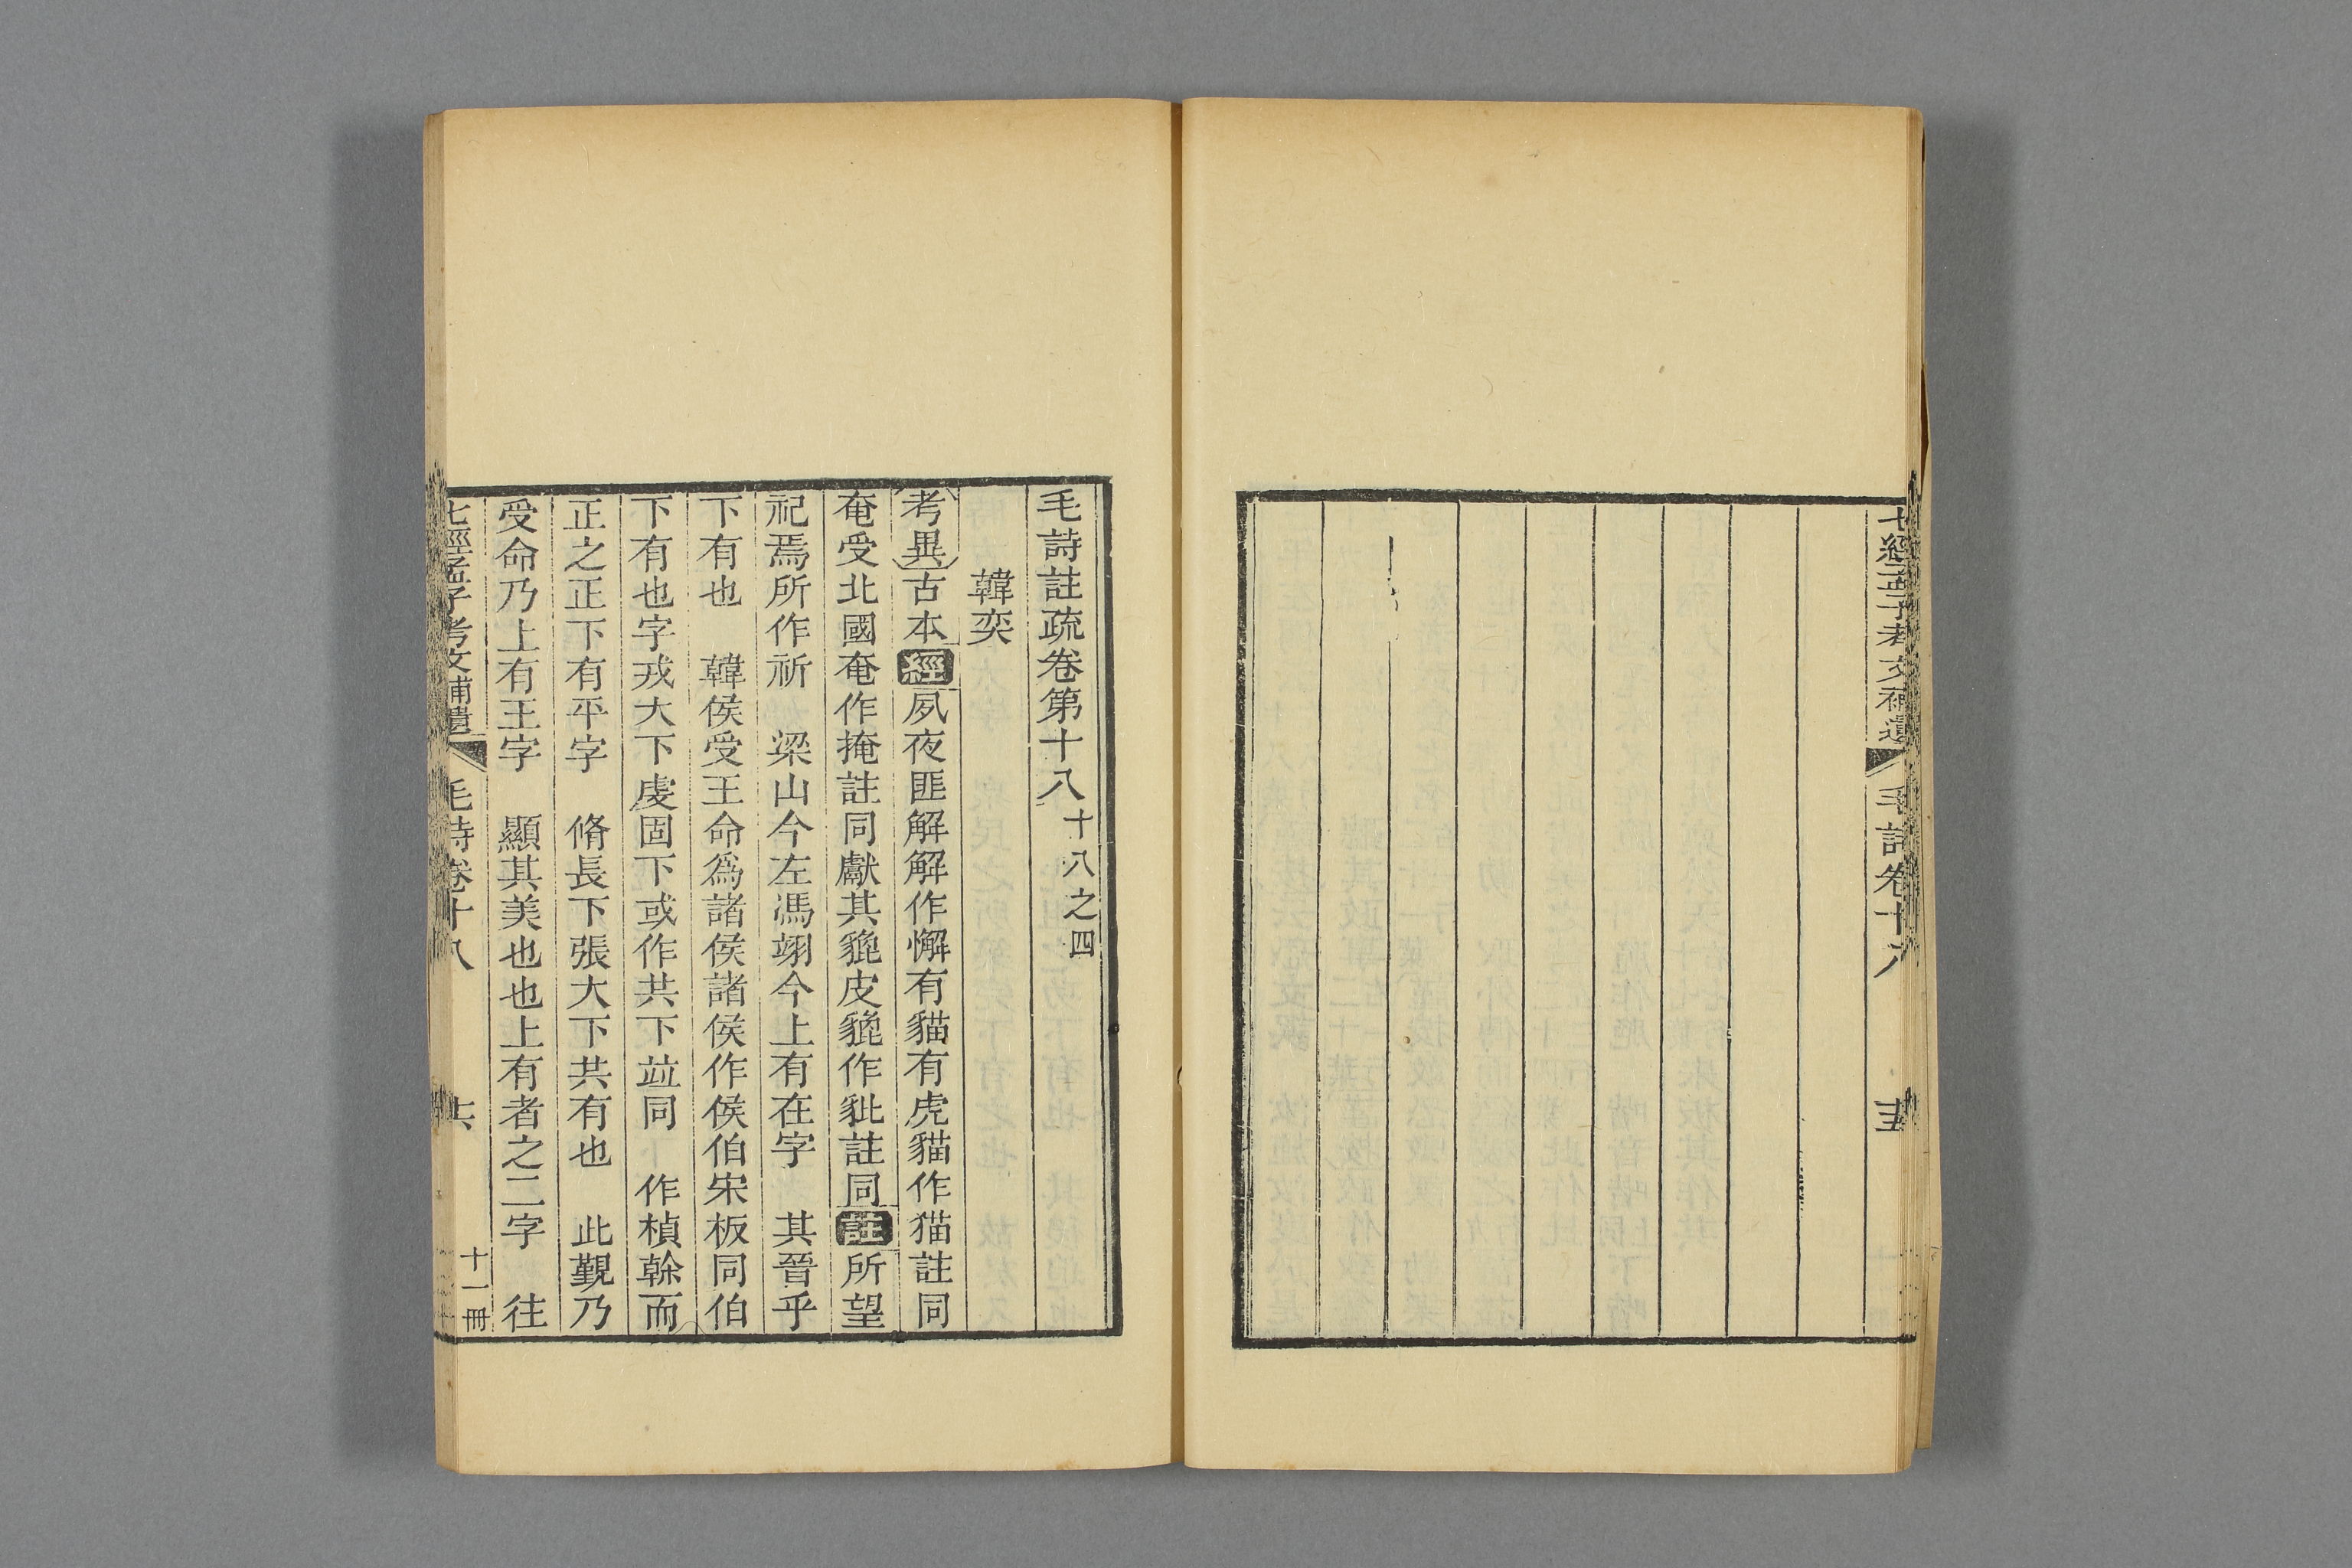 七經孟子考文補遺 毛詩卷十八 十五
毛詩註疏卷第十八 十八之四
韓奕
考異 古本 經 夙夜匪解解作懈有貓有虎貓作猫註同
奄受北國奄作掩註同獻其貔皮貔作豼註同 註 所望
祀焉所作祈 梁山今左馮翊今上有在字 其晉乎
下有也 韓侯受王命爲諸侯諸侯作侯伯宋板同伯
下有也字戎大下虔固下或作共下竝同 作楨榦而
正之正下有平字 脩長下張大下共有也 此覲乃
受命乃上有王字 顯其美也也上有者之二字 往
七經孟子考文補遺 毛詩卷十八 十六 十一冊